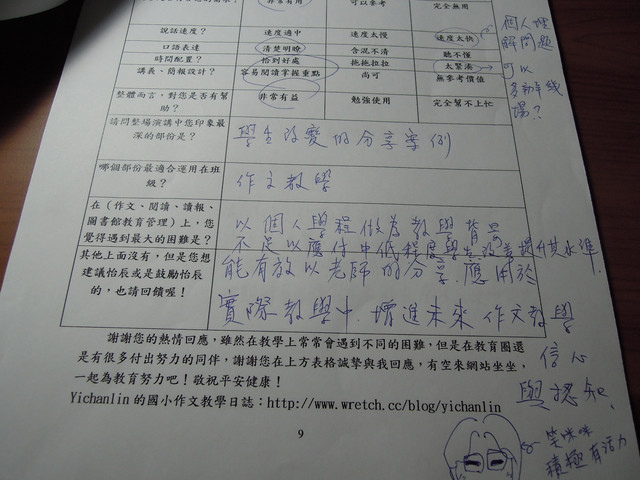 非常有用 可以參考 完全無用
說話速度？ 速度適中 速度太慢 速度太快
口語表達 清楚明瞭 含混不清 聽不懂
時間配置？ 恰到好處 拖拖拉拉 太緊湊
講義、簡報設計？ 容易閱讀掌握重點 尚可 無參考價值
整體而言，對您是否有幫助？ 非常有益 勉強使用 完全幫不上忙
個人理
解問題
可以
多
場？
請問整場演講中您印象最
深的部份是？
學生改變的分享案例
哪個部份最適合運用在班
級？
作文教學
在（作文、閱讀、讀報、
圖書館教育管理）上，您
覺得遇到最大的困難是？
以個人學程做為教學背景
不足以應付中低程度學生改善提升其水準.
其他上面沒有，但是您想
建議怡辰或是鼓勵怡辰
的，也請回饋喔！
能有效以老師的分享.應用於
實際教學中.增進未來作文教學
信心
與認知.
謝謝您的熱情回應，雖然在教學上常常會遇到不同的困難，但是在教育圈還
是有很多付出努力的同伴，謝謝您在上方表格誠摯與我回應，有空來網站坐坐，
一起為教育努力吧！敬祝平安健康！
Yichanlin 的國小作文教學日誌：http://www.wretch.cc/blog/yichanlin
9
笑咪咪
積極有活力